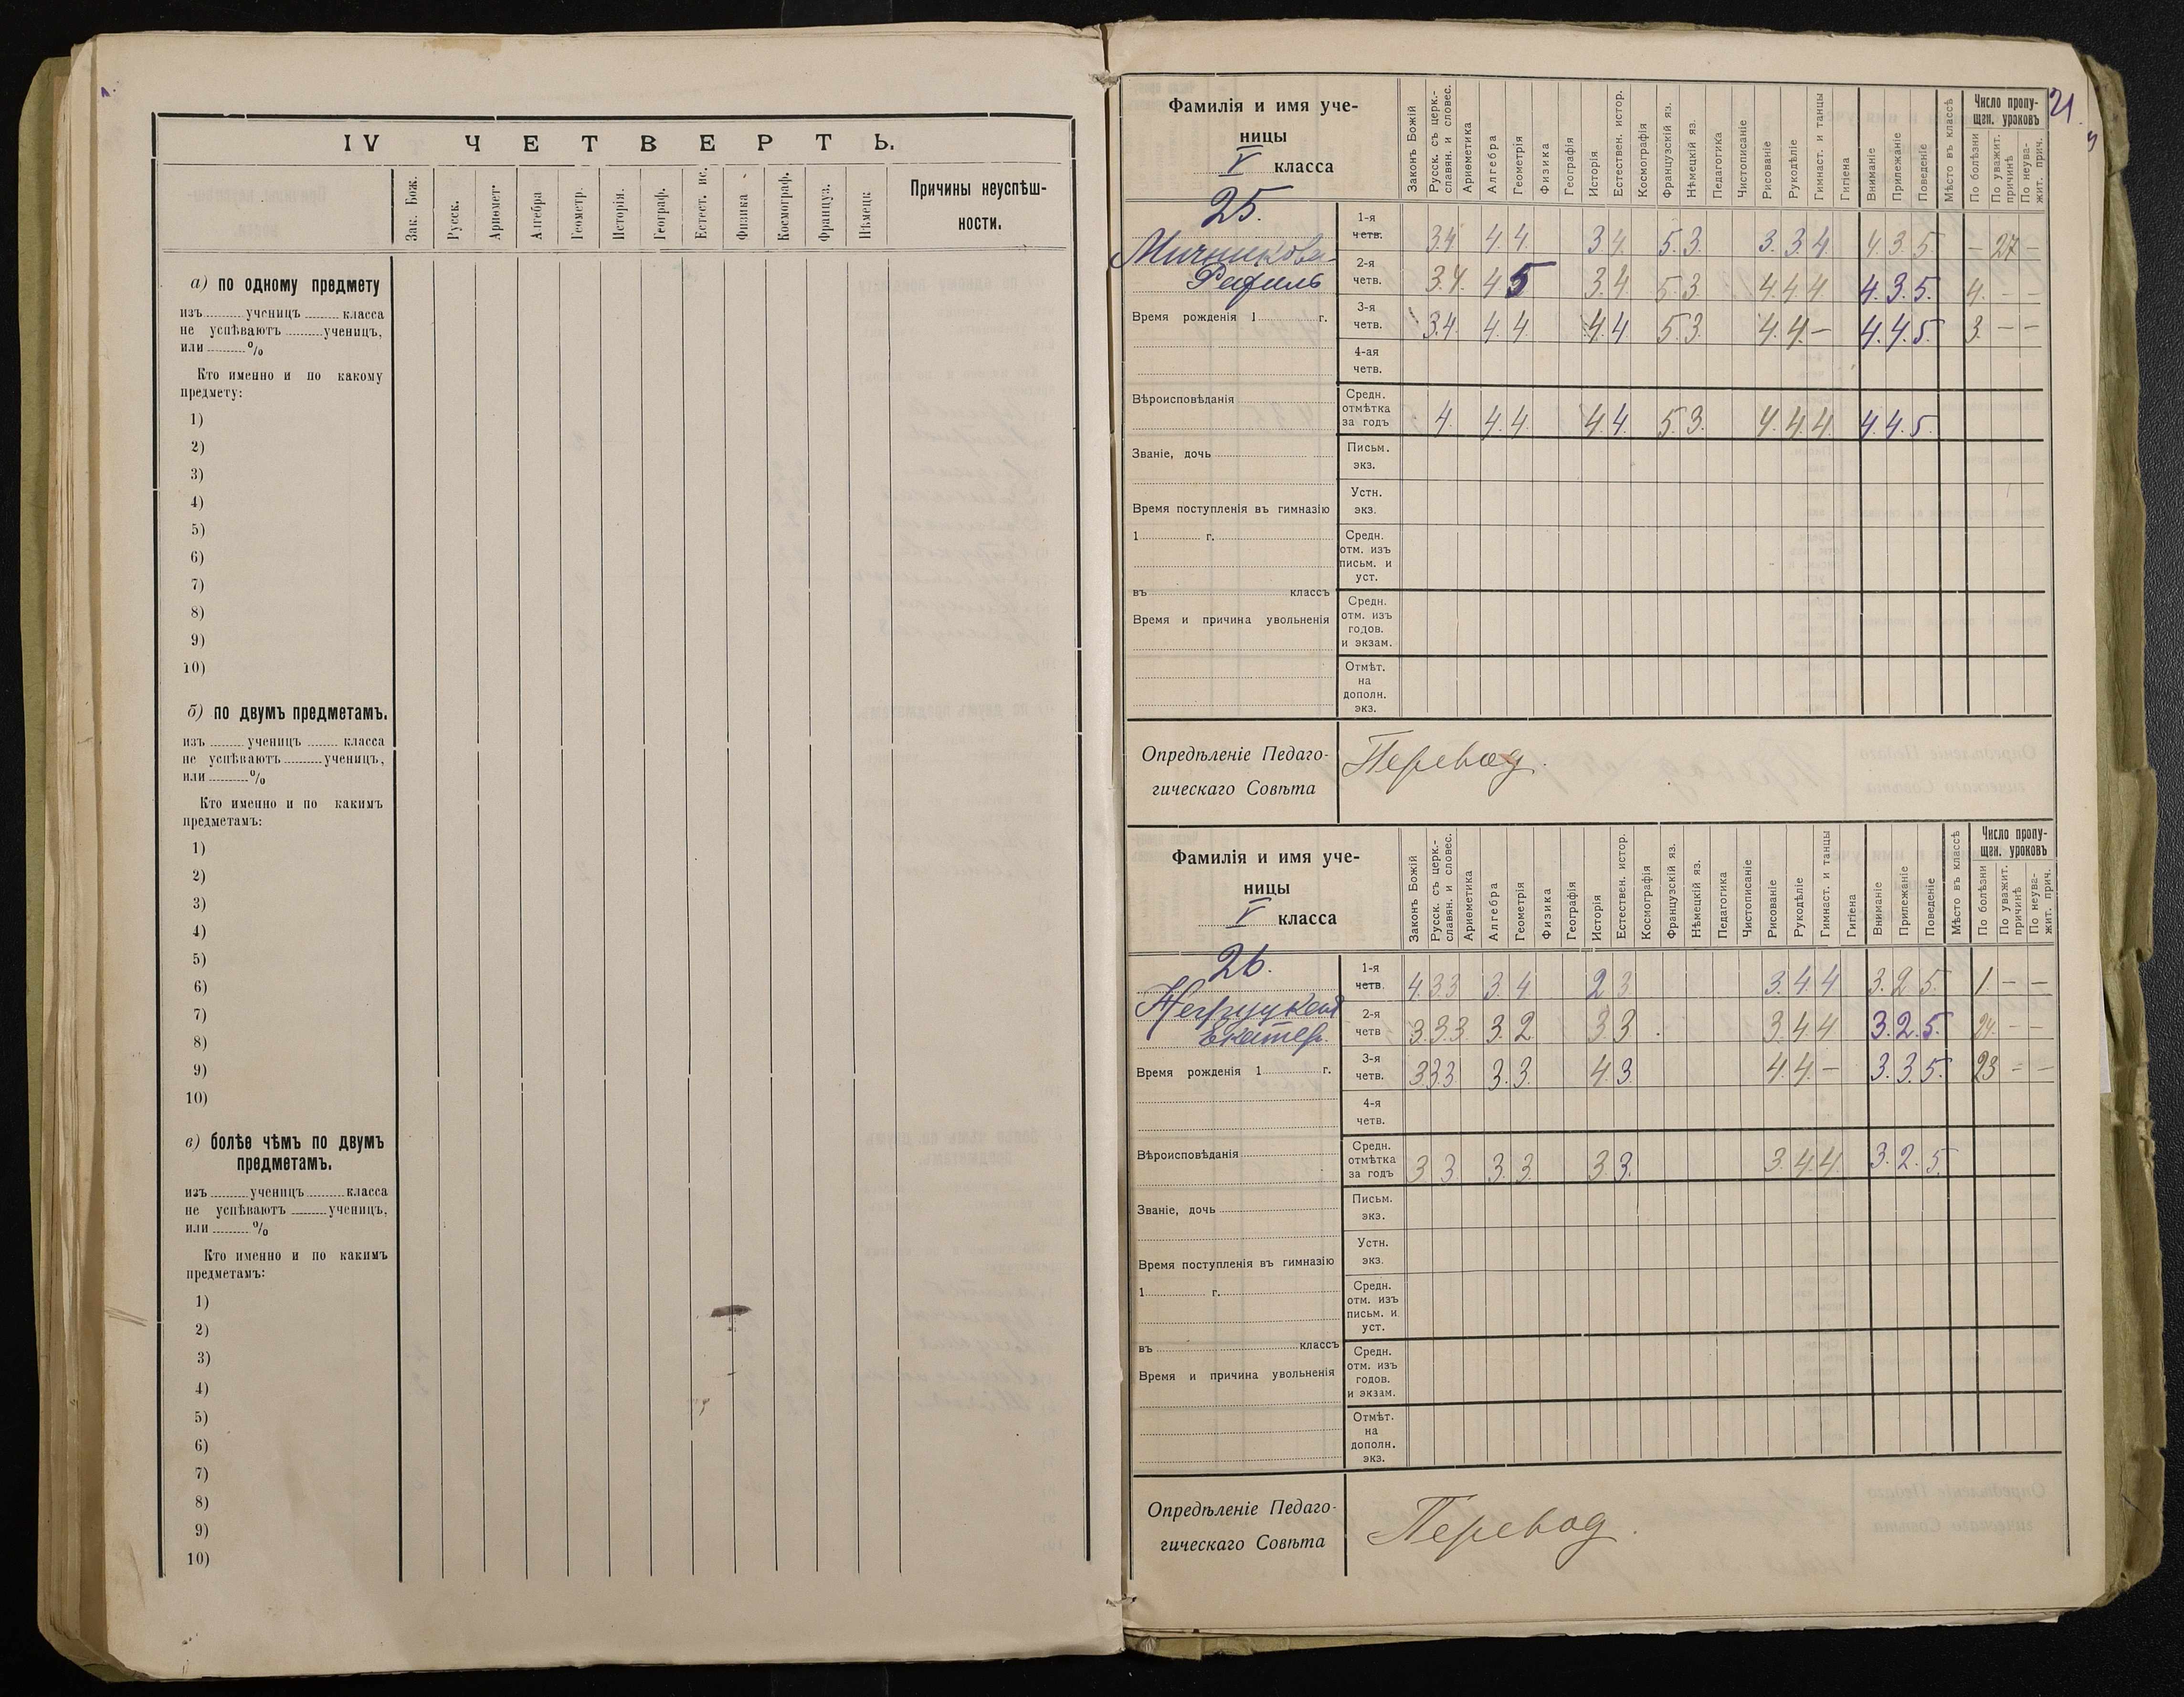 IV ЧЕТВЕРТЬ.
Зак. Бож.
Русск.
Ариѳмет
Алгебра
Геометр.
Исторія.
Географ.
Естест. ис.
Физика
Космограф.
Француз.
Нѣмецк
Причины неуспѣш-
ности.
а) по одному предмету
изъ ученицъ класса
не успѣваютъ ученицъ,
или %
Кто именно и по какому
предмету:
1)
2)
3)
4)
5)
6)
7)
8)
9)
10)
б) по двумъ предметамъ.
изъ ученицъ класса
не успѣваютъ ученицъ,
или %
Кто именно и по какимъ
предметамъ:
1)
2)
3)
4)
5)
6)
7)
8)
9)
10)
в) болѣе чѣмъ по двумъ
предметамъ.
изъ ученицъ класса
не успѣваютъ ученицъ,
или %
Кто именно и по какимъ
предметамъ:
1)
2)
3)
4)
5)
6)
7)
8)
9)
10)
21
Фамилія и имя уче-
ницы
V класса
Законъ Божій
Русск. съ церк.-
славян. и словес.
Ариѳметика
Алгебра
Геометрія
Физика
Географія
Исторія
Естествен. истор.
Космографія
Французскій яз.
Нѣмецкій яз.
Педагогика
Чистописаніе
Рисованіе
Рукодѣліе
Гимнаст. и танцы
Гигіена
Вниманіе
Прилежаніе
Поведеніе
Мѣсто въ классѣ
Число пропу-
щен. уроковъ
По болѣзни
По уважит.
причинѣ
По неува-
жит. прич.
25.
Рафиль
1-я четв. 3 4 4. 4. 3 4. 5. 3. 3. 3. 4. 4. 3. 5. – 27 –
2-я четв. 3. 4. 4 5 3. 4. 5. 3. 4. 4. 4. 4. 3. 5. 4. – –
Время рожденія 1 г.
3-я четв. 3. 4. 4. 4. 4. 4. 5. 3. 4. 4. – 4. 4. 5. 3. – –
4-ая четв.
Вѣроисповѣданія
Средн. отмѣтка за годъ 4. 4. 4. 4. 4. 5. 3. 4. 4. 4. 4. 4. 5.
Званіе, дочь
Письм. экз.
Устн. экз.
Время поступленія въ гимназію
1 г.
Средн. отм. изъ письм. и уст.
въ классъ
Время и причина увольненія
Средн. отм. изъ годов. и экзам.
Отмѣт. на дополн. экз.
Опредѣленіе Педаго-
гическаго Совѣта
Перевод.
Фамилія и имя уче-
ницы
V класса
Законъ Божій
Русск. съ церк.-
славян. и словес.
Ариѳметика
Алгебра
Геометрія
Физика
Географія
Исторія
Естествен. истор.
Космографія
Французскій яз.
Нѣмецкій яз.
Педагогика
Чистописаніе
Рисованіе
Рукодѣліе
Гимнаст. и танцы
Гигіена
Вниманіе
Прилежаніе
Поведеніе
Мѣсто въ классѣ
Число пропу-
щен. уроковъ
По болѣзни
По уважит.
причинѣ
По неува-
жит. прич.
26.
Екатер.
1-я четв. 4. 3 3 3. 4 2 3 3. 4. 4 3. 2. 5. 1. – –
2-я четв 3. 3. 3 3. 2 3 3. 3. 4 4 3. 2. 5. 24. – –
Время рожденія 1 г.
3-я четв. 3 3 3 3. 3. 4. 3. 4. 4. – 3. 3. 5. 23 – –
4-я четв.
Вѣроисповѣданія
Средн. отмѣтка за годъ 3 3 3. 3. 3 3. 3. 4. 4. 3. 2. 5.
Званіе, дочь
Письм. экз.
Устн. экз.
Время поступленія въ гимназію
1 г.
Средн. отм. изъ письм. и уст.
въ классъ
Время и причина увольненія
Средн. отм. изъ годов. и экзам.
Отмѣт. на дополн. экз.
Опредѣленіе Педаго-
гическаго Совѣта
Перевод.